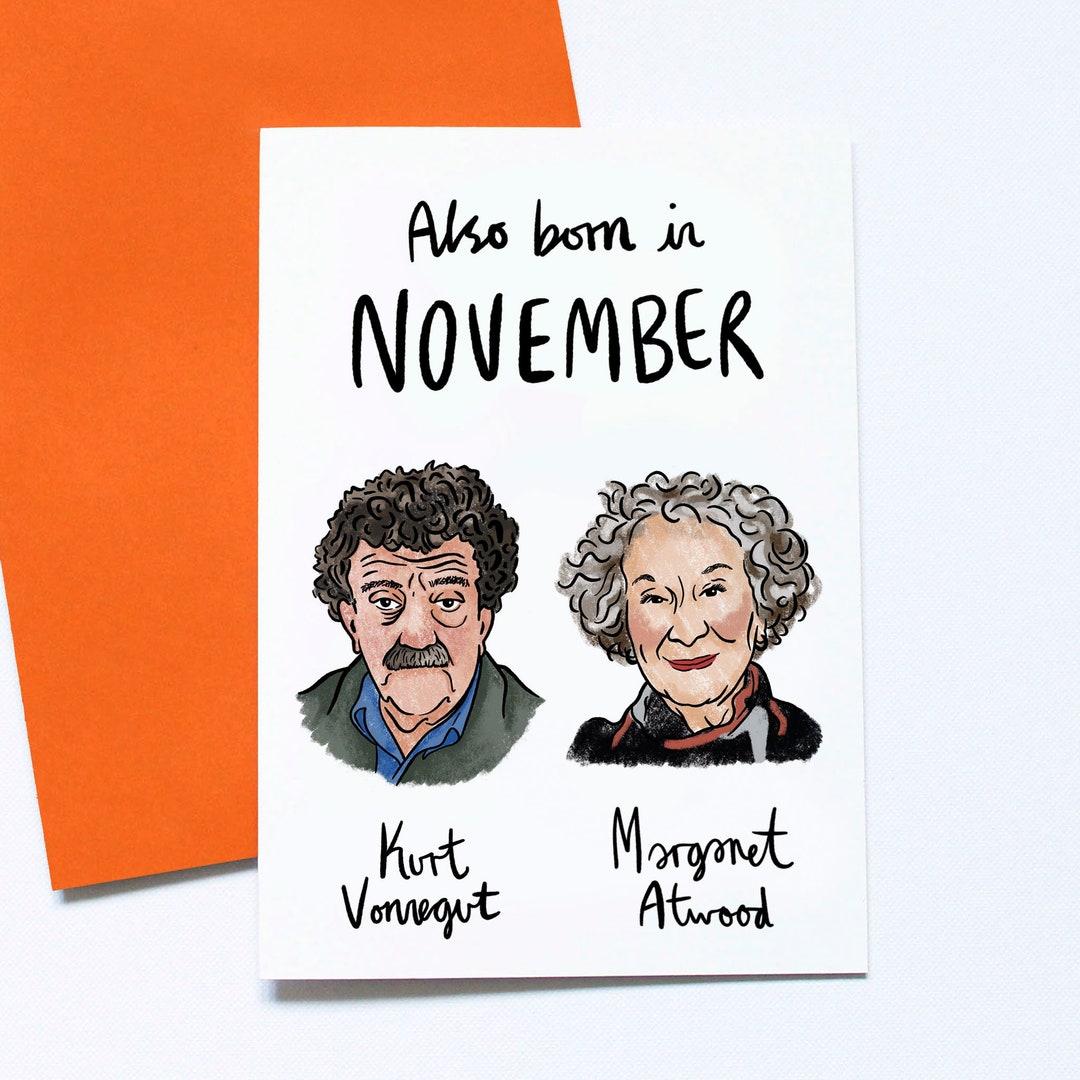 Also born in
NOVEMBER
Kurt
Vonnegut
Margaret
Atwood